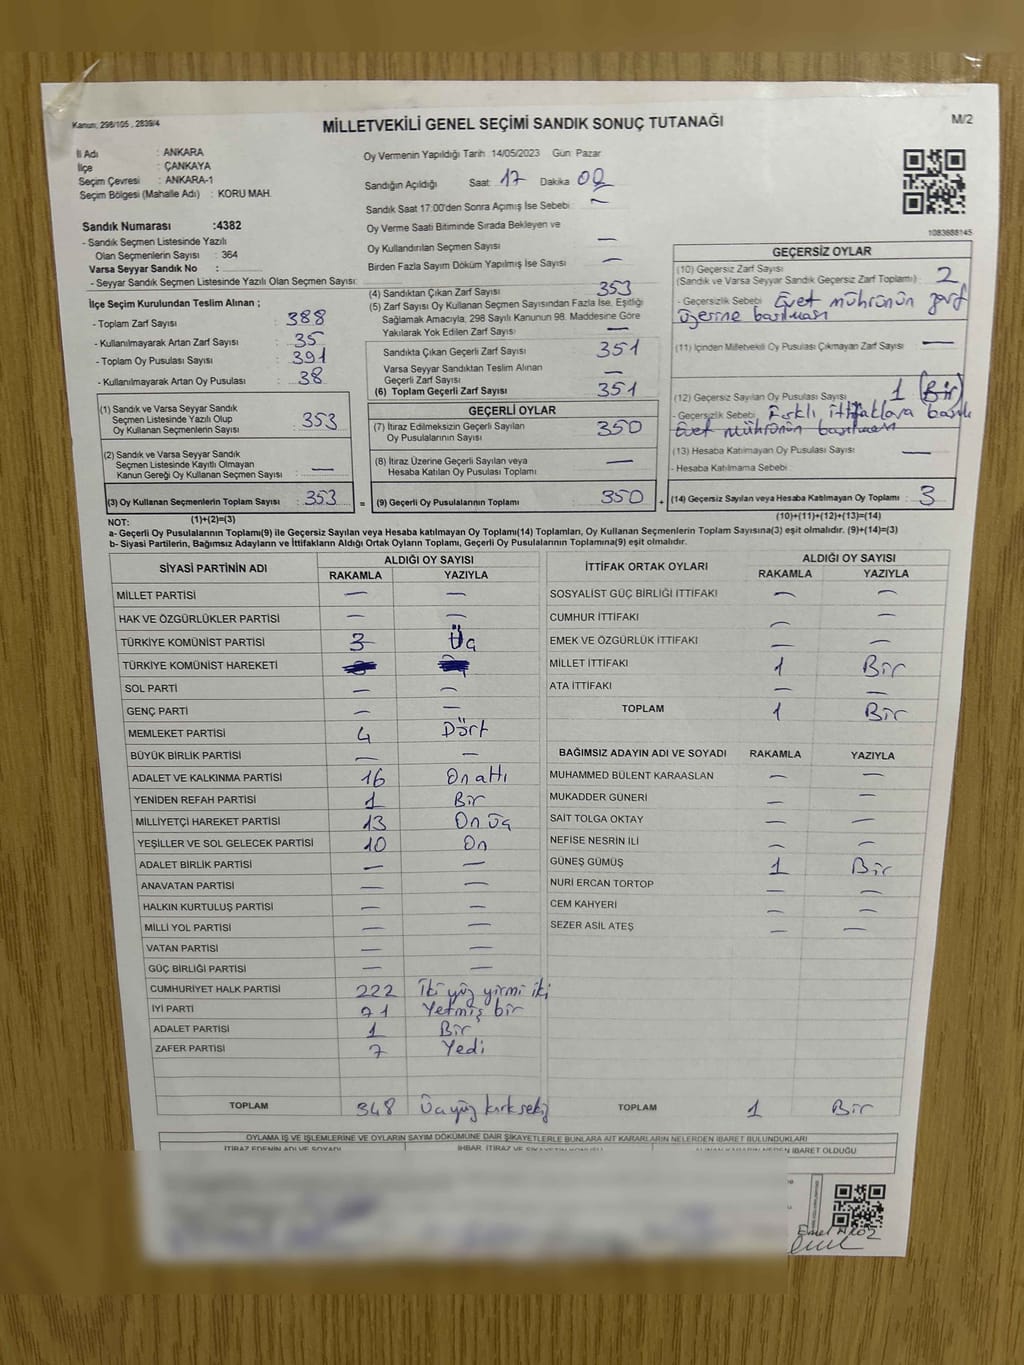 Kanun: 298/105 , 2839/4
MİLLETVEKİLİ GENEL SEÇİMİ SANDIK SONUÇ TUTANAĞI
M/2
İl Adı : ANKARA
İlçe : ÇANKAYA
Seçim Çevresi : ANKARA-1
Seçim Bölgesi (Mahalle Adı) : KORU MAH.
Oy Vermenin Yapıldığı Tarih: 14/05/2023 Gün: Pazar
Sandığın Açıldığı Saat: 17 Dakika 02
Sandık Saat 17:00'den Sonra Açımış İse Sebebi: —
Oy Verme Saati Bitiminde Sırada Bekleyen ve
Oy Kullandırılan Seçmen Sayısı —
Birden Fazla Sayım Döküm Yapılmış İse Sayısı —
1083688145
Sandık Numarası :4382
- Sandık Seçmen Listesinde Yazılı
Olan Seçmenlerin Sayısı : 364
Varsa Seyyar Sandık No :
- Seyyar Sandık Seçmen Listesinde Yazılı Olan Seçmen Sayısı:
İlçe Seçim Kurulundan Teslim Alınan ;
- Toplam Zarf Sayısı : 388
- Kullanılmayarak Artan Zarf Sayısı : 35
- Toplam Oy Pusulası Sayısı : 391
- Kullanılmayarak Artan Oy Pusulası : 38
(1) Sandık ve Varsa Seyyar Sandık
Seçmen Listesinde Yazılı Olup
Oy Kullanan Seçmenlerin Sayısı : 353
(2) Sandık ve Varsa Seyyar Sandık
Seçmen Listesinde Kayıtlı Olmayan
Kanun Gereği Oy Kullanan Seçmen Sayısı : —
(3) Oy Kullanan Seçmenlerin Toplam Sayısı : 353
(4) Sandıktan Çıkan Zarf Sayısı : 353
(5) Zarf Sayısı Oy Kullanan Seçmen Sayısından Fazla İse, Eşitliği
Sağlamak Amacıyla, 298 Sayılı Kanunun 98. Maddesine Göre
Yakılarak Yok Edilen Zarf Sayısı : —
Sandıkta Çıkan Geçerli Zarf Sayısı : 351
Varsa Seyyar Sandıktan Teslim Alınan
Geçerli Zarf Sayısı : —
(6) Toplam Geçerli Zarf Sayısı : 351
GEÇERLİ OYLAR
(7) İtiraz Edilmeksizin Geçerli Sayılan
Oy Pusulalarının Sayısı : 350
(8) İtiraz Üzerine Geçerli Sayılan veya
Hesaba Katılan Oy Pusulası Toplamı : —
= (9) Geçerli Oy Pusulalarının Toplamı : 350
GEÇERSİZ OYLAR
(10) Geçersiz Zarf Sayısı
(Sandık ve Varsa Seyyar Sandık Geçersiz Zarf Toplamı) : 2
- Geçersizlik Sebebi : Evet mührünün zarf
üzerine basılması
(11) İçinden Milletvekili Oy Pusulası Çıkmayan Zarf Sayısı : —
(12) Geçersiz Sayılan Oy Pusulası Sayısı : 1 (Bir)
- Geçersizlik Sebebi : Farklı ittifaklara baskı
Evet mührünün basılması
(13) Hesaba Katılmayan Oy Pusulası Sayısı : —
- Hesaba Katılmama Sebebi :
+ (14) Geçersiz Sayılan veya Hesaba Katılmayan Oy Toplamı : 3
NOT: (1)+(2)=(3)
(10)+(11)+(12)+(13)=(14)
a- Geçerli Oy Pusulalarının Toplamı(9) ile Geçersiz Sayılan veya Hesaba katılmayan Oy Toplamı(14) Toplamları, Oy Kullanan Seçmenlerin Toplam Sayısına(3) eşit olmalıdır. (9)+(14)=(3)
b- Siyasi Partilerin, Bağımsız Adayların ve İttifakların Aldığı Ortak Oyların Toplamı, Geçerli Oy Pusulalarının Toplamına(9) eşit olmalıdır.
SİYASİ PARTİNİN ADI ALDIĞI OY SAYISI
RAKAMLA YAZIYLA
MİLLET PARTİSİ — —
HAK VE ÖZGÜRLÜKLER PARTİSİ — —
TÜRKİYE KOMÜNİST PARTİSİ 3 Üç
TÜRKİYE KOMÜNİST HAREKETİ
SOL PARTİ — —
GENÇ PARTİ — —
MEMLEKET PARTİSİ 4 Dört
BÜYÜK BİRLİK PARTİSİ — —
ADALET VE KALKINMA PARTİSİ 16 On altı
YENİDEN REFAH PARTİSİ 1 Bir
MİLLİYETÇİ HAREKET PARTİSİ 13 On üç
YEŞİLLER VE SOL GELECEK PARTİSİ 10 On
ADALET BİRLİK PARTİSİ — —
ANAVATAN PARTİSİ — —
HALKIN KURTULUŞ PARTİSİ — —
MİLLİ YOL PARTİSİ — —
VATAN PARTİSİ — —
GÜÇ BİRLİĞİ PARTİSİ — —
CUMHURİYET HALK PARTİSİ 222 İki yüz yirmi iki
İYİ PARTİ 71 Yetmiş bir
ADALET PARTİSİ 1 Bir
ZAFER PARTİSİ 7 Yedi
TOPLAM 348 Üç yüz kırk sekiz
İTTİFAK ORTAK OYLARI ALDIĞI OY SAYISI
RAKAMLA YAZIYLA
SOSYALİST GÜÇ BİRLİĞİ İTTİFAKI — —
CUMHUR İTTİFAKI — —
EMEK VE ÖZGÜRLÜK İTTİFAKI — —
MİLLET İTTİFAKI 1 Bir
ATA İTTİFAKI — —
TOPLAM 1 Bir
BAĞIMSIZ ADAYIN ADI VE SOYADI RAKAMLA YAZIYLA
MUHAMMED BÜLENT KARAASLAN — —
MUKADDER GÜNERİ — —
SAİT TOLGA OKTAY — —
NEFİSE NESRİN İLİ — —
GÜNEŞ GÜMÜŞ 1 Bir
NURİ ERCAN TORTOP — —
CEM KAHYERİ — —
SEZER ASİL ATEŞ — —
TOPLAM 1 Bir
OYLAMA İŞ VE İŞLEMLERİNE VE OYLARIN SAYIM DÖKÜMÜNE DAİR ŞİKAYETLERLE BUNLARA AİT KARARLARIN NELERDEN İBARET BULUNDUKLARI
İTİRAZ EDENİN ADI VE SOYADI